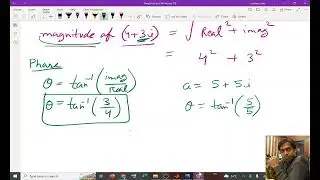 magnitude of (4+3i) = √ Real² + imag²
= 4² + 3²
Phase
θ = tan⁻¹ (imag/Real)
θ = tan⁻¹ (3/4)
a = 5 + 5i
θ = tan⁻¹ (5/5)
Type here to search